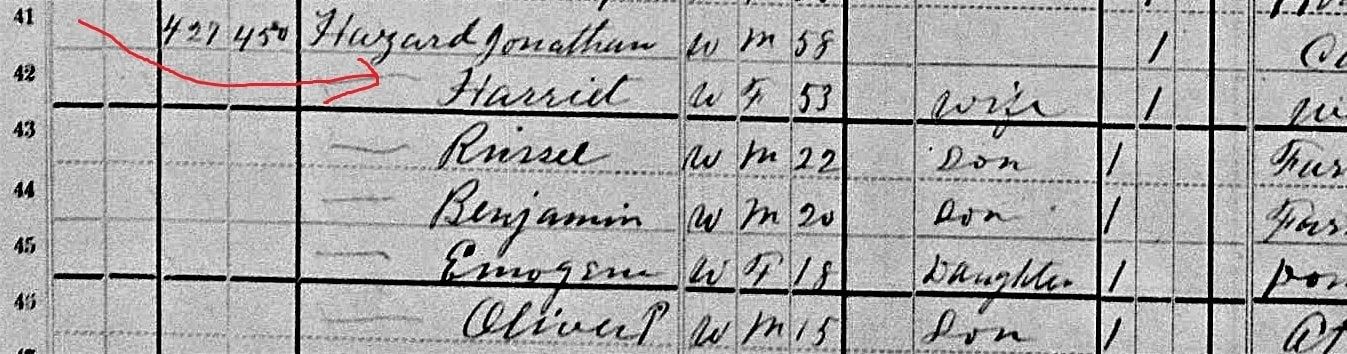 41 427 450 Hazard Jonathan W M 58 1
42 Harriet W F 53 wife 1
43 Russel W M 22 Son 1
44 Benjamin W M 20 Son 1
45 Emogene W F 18 Daughter 1
46 Oliver P W M 15 Son 1